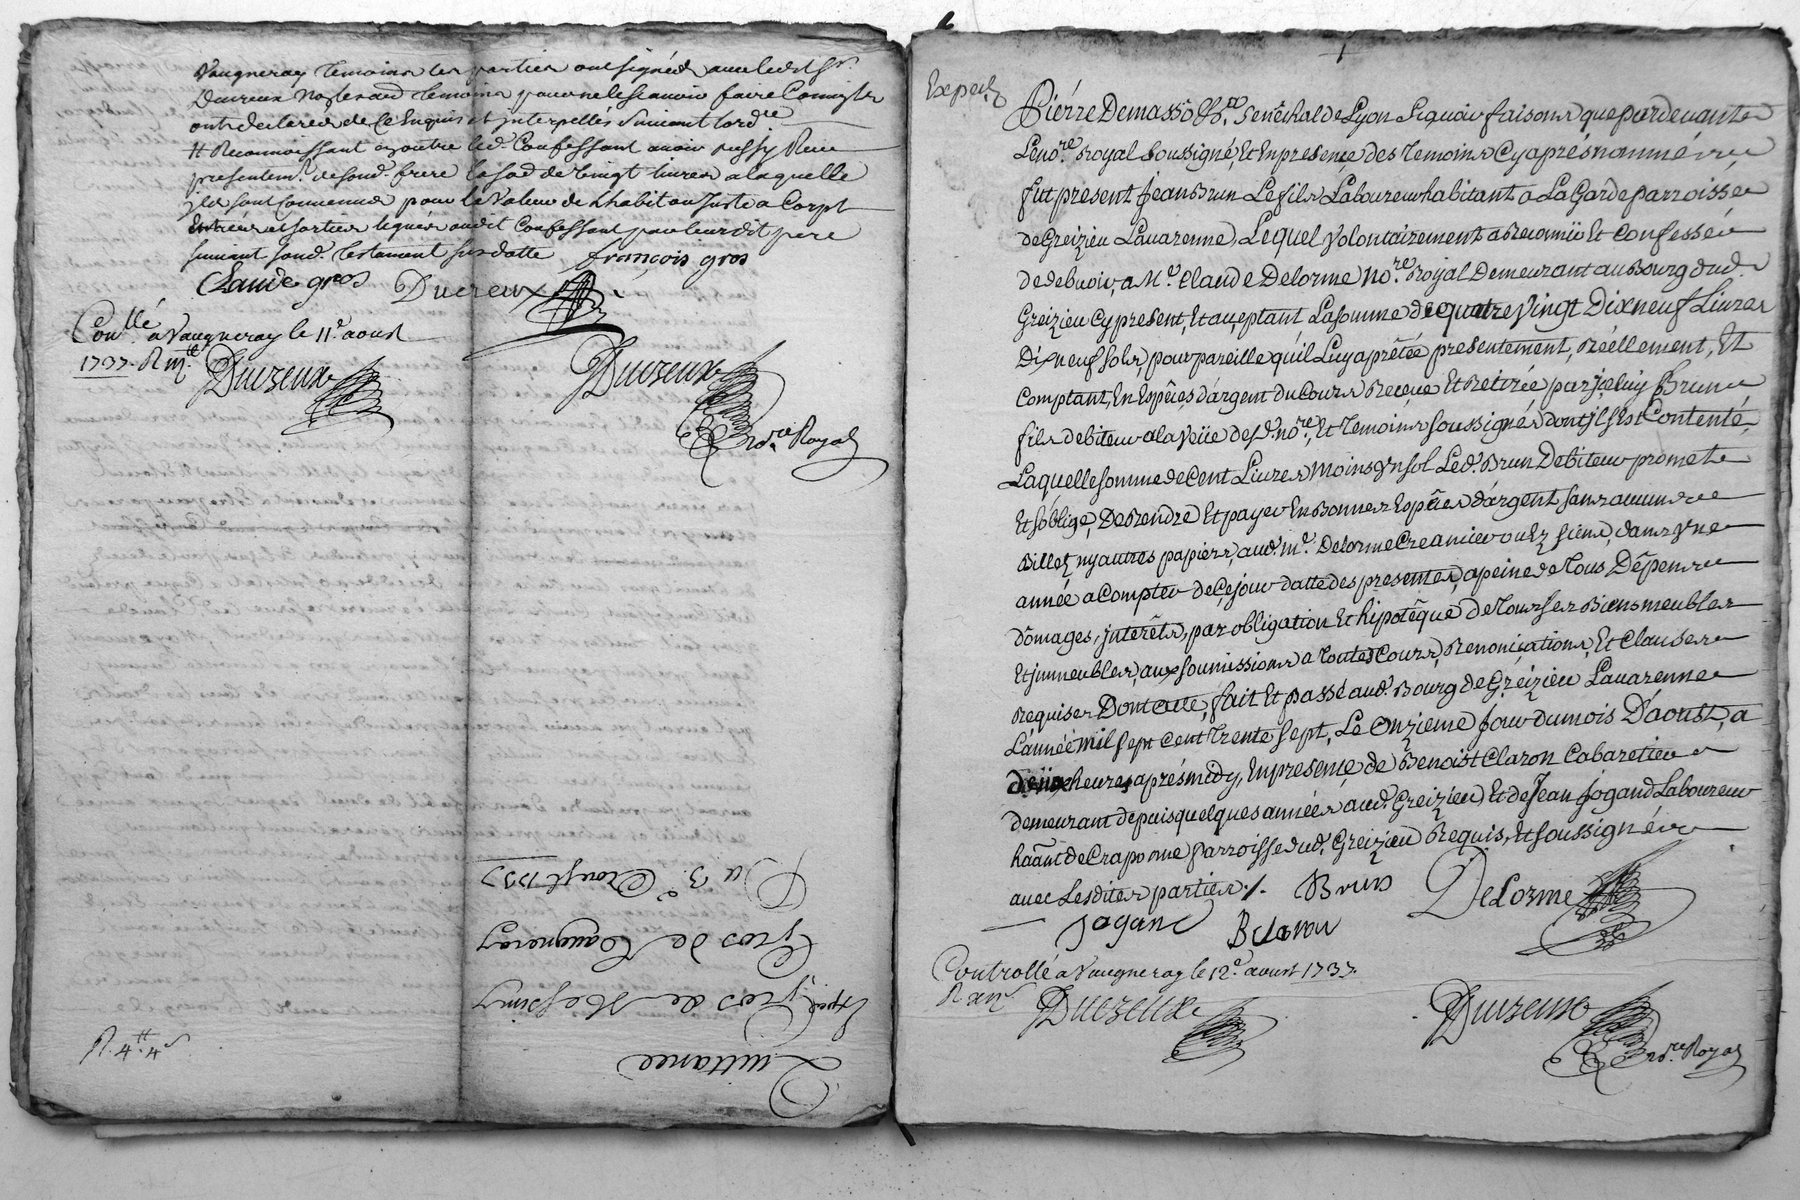 Vaugneray temoins les parties ont signées avec ledit Sr.
Ducreux no les aud temoins pour ne le scavoir faire
ont declarées de ce Enquis et interpellés suivant lord.re
# Reconnoissant en outre led. Confessant avoir Receu
presentem.t de sond. frere la so.e de vingt livres a laquelle
ils sont convenus pour la valeur de l'habit
legués audit Confessant par leurdit pere
suivant sond. testament susdatte françois gros
Claude gros Ducreux
Con.llé a Vaugneray le 11.e aoust
1737. R
Ducreux
Ducreux
no.re Royal
Quittance
Exped. Gros de Messimy
Gros de Vaugneray
Du 3.e Aoust 1737
R. 4# 4s
Exped.
Pierre Demasso Ch.er Senêchal de Lyon Sçavoir faisons que pardevant
Le no.re Royal soussigné, Et En presence des Temoins Cy aprés nommés
fut present Jean Brun Le fils Laboureur habitant a La Garde parroisse
de Greizieu Lavarenne, Lequel volontairement a Reconnü Et Confessé
de debvoir, a M.e Claude Delorme No.re Royal Demeurant au Bourg dud.
Greizieu Cy present, Et acceptant La somme de quatre vingt Dix neuf Livres
Dix neuf sols, pour pareille qu'il Luy a prêtée presentement, Réellement, Et
Comptant, En Espêces d'argent du Cours Reçeue Et Retirée par jceluy Brun
fils debiteur a la Veüe desd. no.re, Et Temoins soussignés dont jl s'est Contenté,
Laquelle somme de Cent Livres moins Vn sol Led. Brun Debiteur promet
Et s'oblige, De Rendre Et payer En Bonnes Espêces d'argent sans aucuns
Billets ny autres papiers, aud. M.e Delorme Creancier ou Es siens, dans Vne
année a Compter de Ce jour datte des presentes, a peine de Tous Dêpens
dômages, jnterêts, par obligation Et hipotêque de Tous ses Biens meubles
Et jmmeubles, aux soumissions a Toutes Cours, Renonciations, Et Clauses
Requises Dont acte, fait Et passé aud. Bourg de Greizieu Lavarenne
L'année mil sept Cent Trente sept, Le Onzieme Jour du mois D'aoust, a
deux heures aprés midy, En presence de Benoist Claron Cabaretier
demeurant depuis quelques années aud. Greizieu, Et de Jean Jogand Laboureur
ha͠ant de Craponne parroisse dud. Greizieu Requis, Et soussignés
avec Lesdites parties ./. Brun Delorme
Jogand B claron
Controllé a Vaugneray le 12.e aoust 1737.
R
Ducreux
Ducreux
no.re Royal